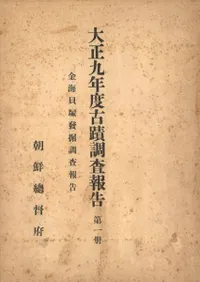 大正九年度古蹟調査報告 第一冊
金海貝塚發掘調査報告
朝鮮總督府